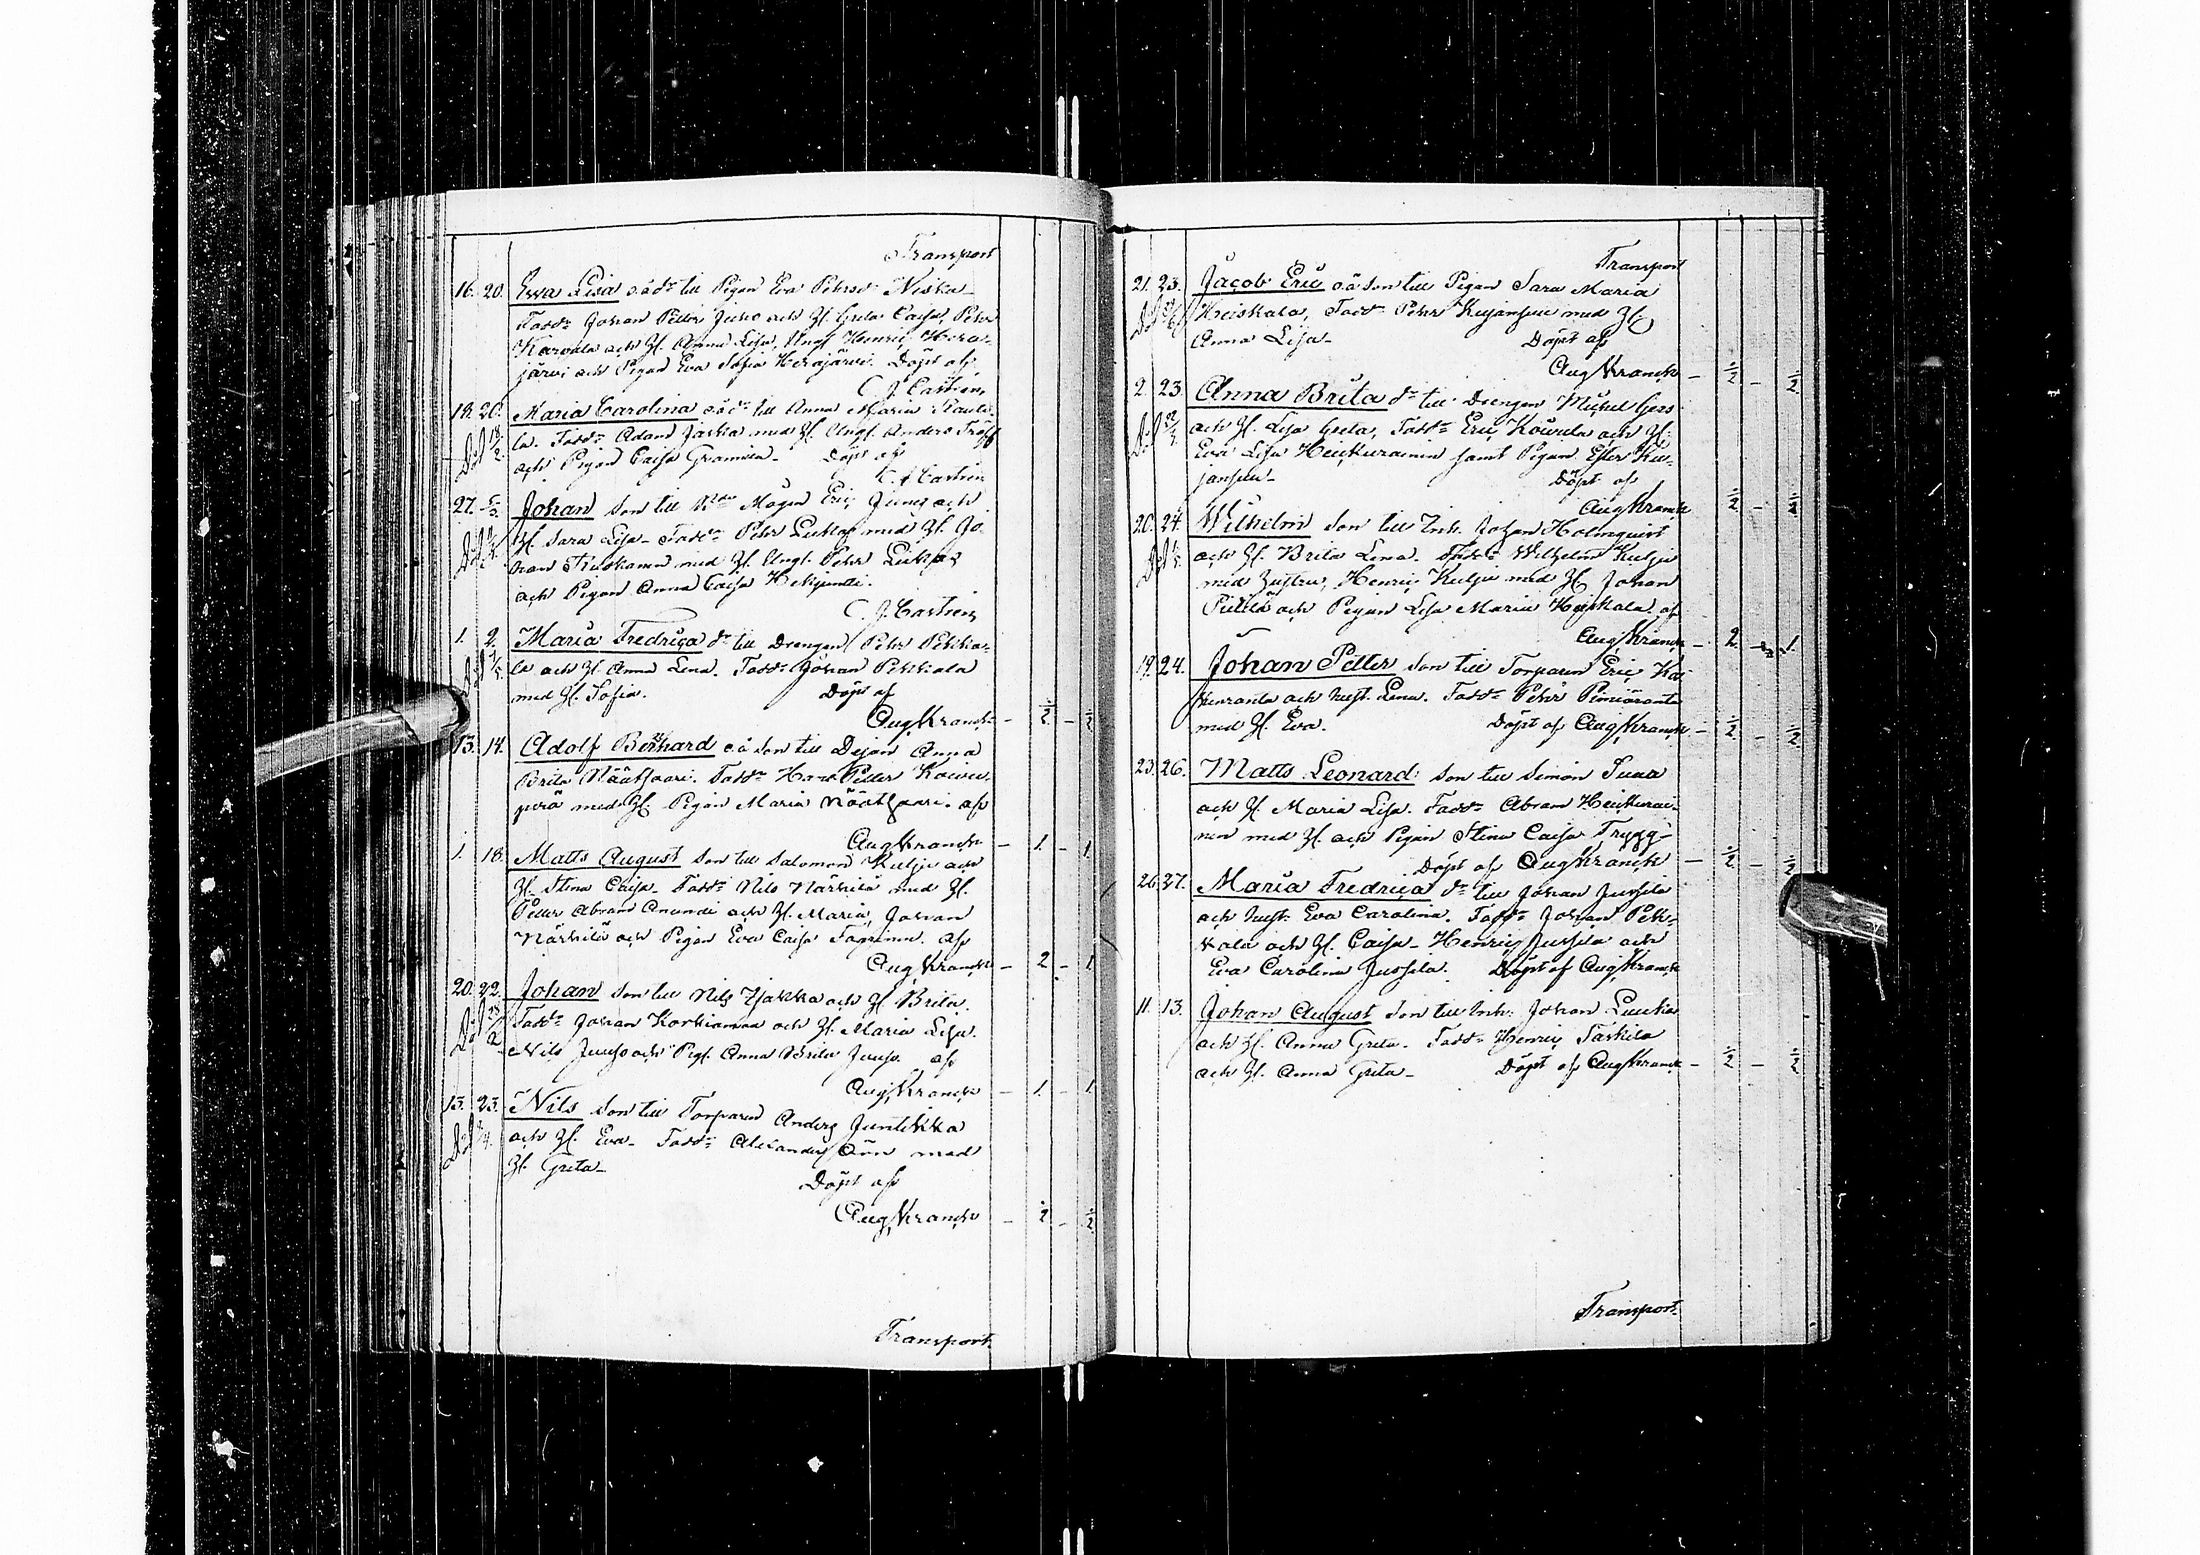 Transport
16. 20. Ewa Lisa o.ä. dr till Pigan Eva Pehrsdr Niska
Fadd: Johan Petter Juho och H. Greta Caisa, Pehr
Karvala och H. Anna Lisa, Ungk Henric Hera-
järvi och Pigan Eva Sofia Herajärvi. Döpt af
C. J. Castrén
18. 20. Maria Carolina o.ä. dr till Anna Maria Rauto
la. Fadd: Adam Jaska med H. Ungk. Anders
och Pigan Caisa Döpt af
C. J. Castrén
27. Johan Son till Mågen Eric och
H. Sara Lisa Fadd: Pehr med H. Jo-
han med H. Ungk. Pehr
och Pigan Anna Caisa
C. J. Castrén
1. 2. Maria Fredrica dr till Drengen Pehr Pekka-
la och H. Anna Lena. Fadd: Johan Pekkala
med H. Sofia. Döpt af
Aug Kranck - ½ - ½
13. 14. Adolf Bernhard o.ä. Son till Anna
Brita Näätsaari. Fadd: Petter Koivu
perä med H. Pigan Maria Näätsaari. af
Aug Kranck - 1 - 1
1. 18. Matts August Son till Salomon Kulju och
H. Stina Caisa Fadd: Nils Närhilä med H.
Petter Abram Anundi och H. Maria, Johan
Närhilä och Pigan Eva Caisa af
Aug Kranck - 2 - 1
20. 22. Johan Son till Nils och H. Brita.
Fadd: Johan Korkiamaa och H. Maria Lisa.
Nils Juuso och Pig. Anna Brita Juuso af
Aug Kranck - 1 - 1
13. 23. Nils Son till Torparen Anders Juntikka
och H. Eva Fadd: Alexander med
H. Greta
Döpt af
Aug Kranck - ½ - ½
Transport
Transport
21. 23. Jacob Eric o.ä. Son till Pigan Sara Maria
Heiskala, Fadd: Pehr Kujansuu med H.
Anna Lisa Döpt af
Aug Kranck - ½ - ½
2. 23. Anna Brita dr till Drengen Mickel Gers
och H. Lisa Greta, Fadd: Eric Koivula och H.
Eva Lisa Heickurainen samt Pigan Ester Ku-
jansuu Döpt af
Aug Kranck ½ - ½
20. 24. Wilhelm Son till Inh. Johan Holmquist
och H. Brita Lena. Fadd: Wilhelm Kulju
med Hustru, Henric Kulju med H. Johan
Pietilä och Pigan Lisa Maria Heiskala af
Aug Kranck - 2 - 1
19. 24. Johan Petter Son till Torparen Eric
och hust. Lena. Fadd: Pehr
med H. Eva. Döpt af Aug Kranck - ½ - ½
23. 26. Matts Leonard Son till Simon
och H. Maria Lisa. Fadd: Abram Heickurai-
nen med H. och Pigan Stina Caisa Trygg
Döpt af Aug Kranck - ½ - ½
26. 27. Maria Fredrica dr till Johan Jussila
och hust. Eva Carolina. Fadd: Johan Pek-
kala och H. Caisa Henric Jussila och
Eva Carolina Jussila. Döpt af Aug Kranck
11. 13. Johan August Son till Inh. Johan
och H. Anna Greta. Fadd: Henric Taskila
och H. Anna Greta Döpt af Aug Kranck - ½ - ½
Transport